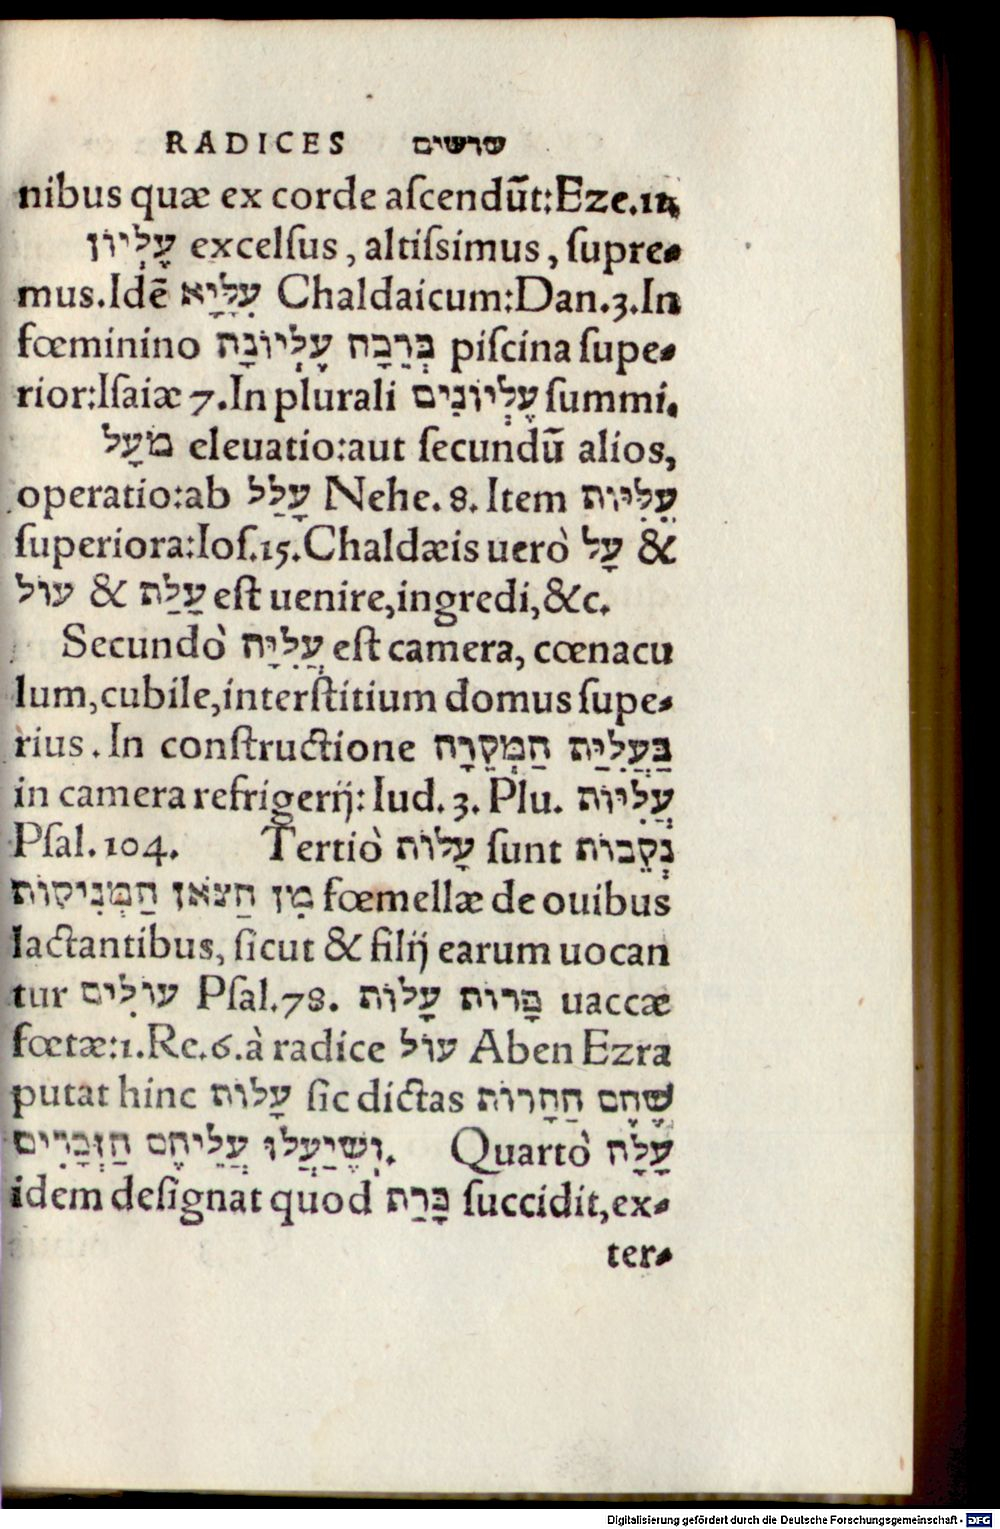 RADICES שרשים
nibus quæ ex corde aſcendũt: Eze.11.
עֶלְיוֹן excelſus, altiſsimus, ſupre-
mus. Idẽ עִלָּיָא Chaldaicum: Dan.3. In
fœminino בְּרֵבָה עֶלְיוֹנָה piſcina ſupe-
rior: Iſaiæ 7. In plurali עֶלְיוֹנִים ſummi.
מֹעַל eleuatio: aut ſecundũ alios,
operatio: ab עָלַל Nehe. 8. Item עֲלִיּוֹת
ſuperiora: Ioſ.15. Chaldæis uerò עָל &
עוּל & עֲלַת eſt uenire, ingredi, &c.
Secundò עֲלִיָּה eſt camera, cœnacu
lum, cubile, interſtitium domus ſupe-
rius. In conſtructione בַּעֲלִיַּת הַמְּקֵרָה
in camera refrigerij: Iud. 3. Plu. עֲלִיּוֹת
Pſal. 104. Tertiò עָלוֹת ſunt נְקֵבוֹת
מִן הַצֹּאן הַמְּנִיקוֹת fœmellæ de ouibus
lactantibus, ſicut & filij earum uocan
tur עוֹלִים Pſal.78. פָּרוֹת עָלוֹת uaccæ
fœtæ: 1. Re.6. à radice עוּל Aben Ezra
putat hinc עָלוֹת ſic dictas שֶׁהֶם הַהָרוֹת
וְשֶׁיַּעֲלוּ עֲלֵיהֶם הַזְּכָרִים. Quartò עָלָה
idem deſignat quod כָּרַת ſuccidit, ex-
ter-
Digitalisierung gefördert durch die Deutsche Forschungsgemeinschaft - DFG